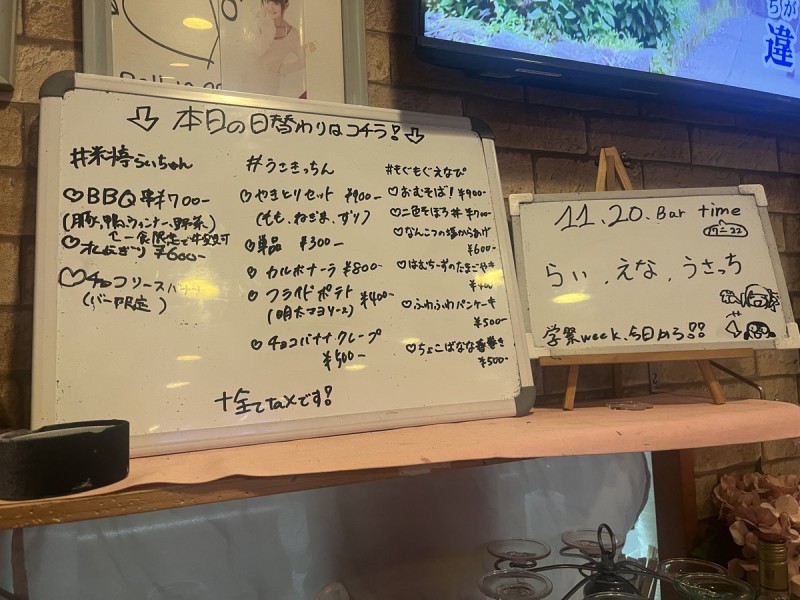 本日の日替わりはコチラ!
#米椿らぃちゃん
♡BBQ串¥700-
(豚、鴨、ウィンナー、野菜)
¥600-
♡チョコソースバナナ
(バー限定)
#うさきっちん
やきとりセット ¥900-
(もも、ねぎま、ずり)
単品 ¥300-
カルボナーラ ¥800-
フライドポテト ¥400-
(明太マヨソース)
チョコバナナクレープ
¥500-
#もぐもぐえなぴ
♡おむそば! ¥900-
♡二色そぼろ丼 ¥700-
♡なんこつの唐からあげ
¥600-
♡はむちーずのたまごやき
♡ふわふわパンケーキ
¥500-
♡ちょこばなな春巻き
¥500-
+全てtaxです!
11.20.Bar time
らぃ、えな、うさっち
学祭week、今日から!!
が
違